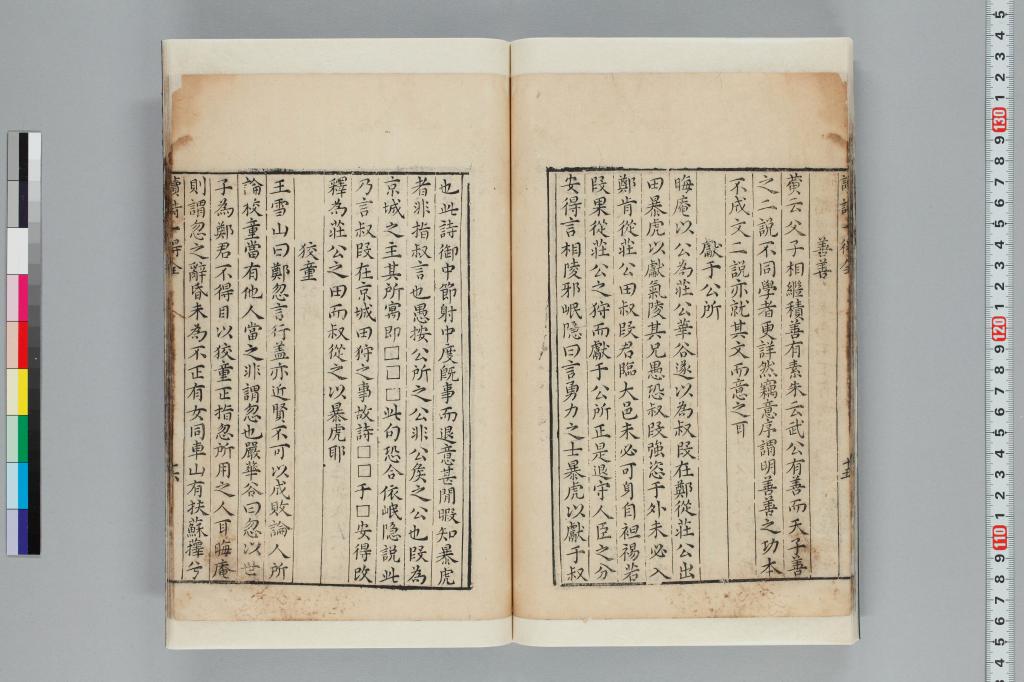 善善
黄云父子相繼積善有素朱云武公有善而天子善
之二説不同學者更詳然竊意序謂明善善之功本
不成文二説亦就其文而意之耳
獻于公所
晦庵以公為莊公華谷遂以為叔段在鄭從莊公出
田暴虎以獻氣陵其兄愚恐叔段強恣于外未必入
鄭肯從莊公田叔段君臨大邑未必可身自袒裼若
段果從莊公之狩而獻于公所正是退守人臣之分
安得言相陵邪岷隠曰言勇力之士暴虎以獻于叔
也此詩御中節射中度旣事而退意甚閒暇知暴虎
者非指叔言也愚按公所之公非公矦之公也段為
京城之主其所寓即□□□此句恐合依岷隠説此
乃言叔段在京城田狩之事故詩□□于□安得改
釋為莊公之田而叔從之以暴虎耶
狡童
王雪山曰鄭忽言行盖亦近賢不可以成敗論人所
論狡童當有他人當之非謂忽也嚴華谷曰忽以世
子為鄭君不得目以狡童正指忽所用之人耳晦庵
則謂忽之辭昏未為不正有女同車山有扶蘇蘀兮
讀詩一得全